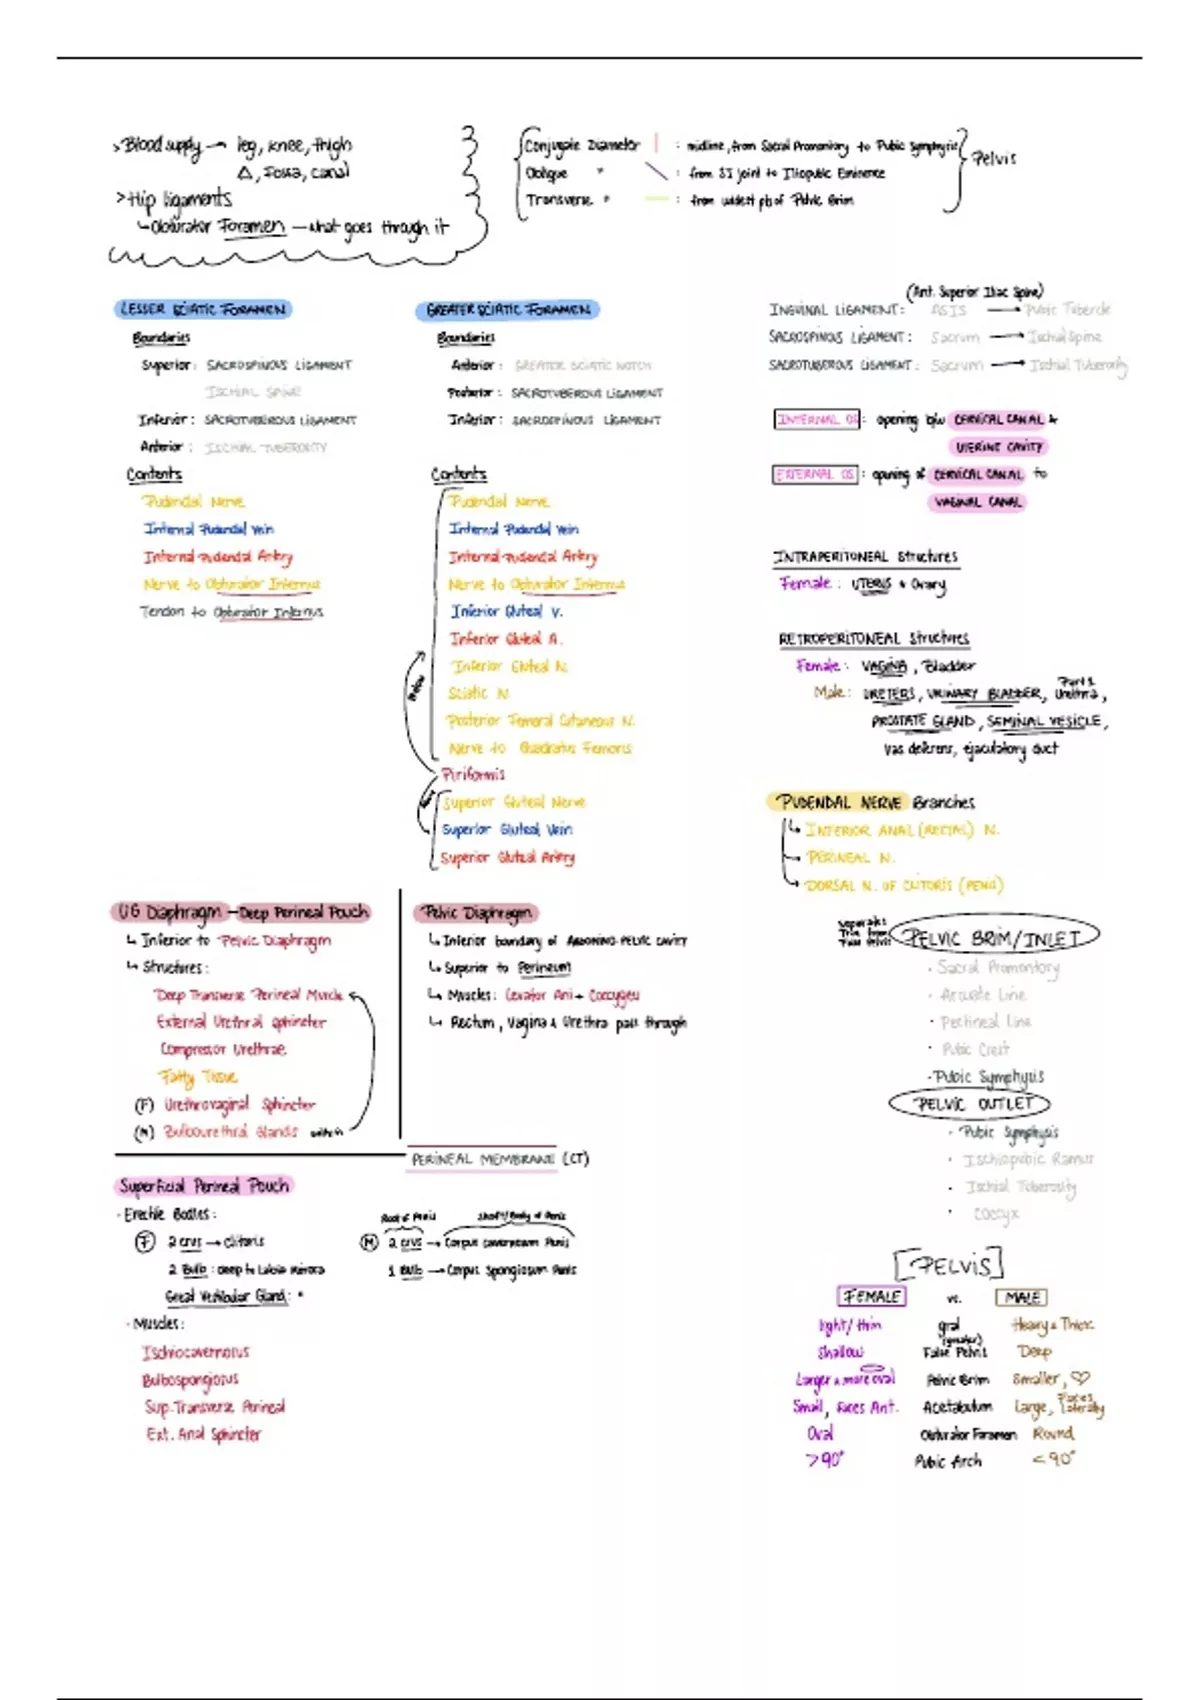 > Blood supply → leg, knee, thigh
Δ, Fossa, canal
> Hip ligaments
↳ Obturator Foramen — what goes through it
Conjugate Diameter | : midline, from Sacral Promontory to Pubic Symphysis
Oblique " \ : from SI joint to Iliopubic Eminence
Transverse " — : from widest pts of Pelvic Brim
Pelvis
LESSER SCIATIC FORAMEN
Boundaries
Superior : SACROSPINOUS LIGAMENT
ISCHIAL SPINE
Inferior : SACROTUBEROUS LIGAMENT
Anterior : ISCHIAL TUBEROSITY
Contents
Pudendal Nerve
Internal Pudendal Vein
Internal Pudendal Artery
Nerve to Obturator Internus
Tendon to Obturator Internus
GREATER SCIATIC FORAMEN
Boundaries
Anterior : GREATER SCIATIC NOTCH
Posterior : SACROTUBEROUS LIGAMENT
Inferior : SACROSPINOUS LIGAMENT
Contents
Pudendal Nerve
Internal Pudendal Vein
Internal Pudendal Artery
Nerve to Obturator Internus
Inferior Gluteal V.
Inferior Gluteal A.
Inferior Gluteal N.
Sciatic N.
Posterior Femoral Cutaneous N.
Nerve to Quadratus Femoris
Below
Piriformis
Superior Gluteal Nerve
Superior Gluteal Vein
Superior Gluteal Artery
(Ant. Superior Iliac Spine)
INGUINAL LIGAMENT: ASIS → Pubic Tubercle
SACROSPINOUS LIGAMENT: Sacrum → Ischial Spine
SACROTUBEROUS LIGAMENT: Sacrum → Ischial Tuberosity
INTERNAL OS : opening b/w CERVICAL CANAL &
UTERINE CAVITY
EXTERNAL OS : opening of CERVICAL CANAL to
VAGINAL CANAL
INTRAPERITONEAL Structures
Female : UTERUS & Ovary
RETROPERITONEAL Structures
Female : VAGINA, Bladder
Male : URETERS, URINARY BLADDER, Part 1 Urethra,
PROSTATE GLAND, SEMINAL VESICLE,
Vas deferens, ejaculatory duct
PUDENDAL NERVE Branches
↳ INFERIOR ANAL (RECTAL) N.
→ PERINEAL N.
→ DORSAL N. OF CLITORIS (PENIS)
UG Diaphragm — Deep Perineal Pouch
↳ Inferior to Pelvic Diaphragm
↳ Structures :
Deep Transverse Perineal Muscle
External Urethral Sphincter
Compressor Urethrae
Fatty Tissue
(F) Urethrovaginal Sphincter
(M) Bulbourethral Glands within
Pelvic Diaphragm
↳ Inferior boundary of ABDOMINO-PELVIC CAVITY
↳ Superior to Perineum
↳ Muscles : Levator Ani + Coccygeu
↳ Rectum, Vagina & Urethra pass through
PERINEAL MEMBRANE (CT)
Separates
True from
False Pelvis
PELVIC BRIM/INLET
· Sacral Promontory
· Arcuate Line
· Pectineal Line
· Pubic Crest
· Pubic Symphysis
PELVIC OUTLET
· Pubic Symphysis
· Ischiopubic Ramus
· Ischial Tuberosity
· Coccyx
Superficial Perineal Pouch
· Erectile Bodies :
(F) 2 crus → clitoris
2 Bulb : deep to Labia Minora
Great Vestibular Gland : "
Root of Penis Shaft/Body of Penis
(M) 2 crus → Corpus cavernosum Penis
1 Bulb → Corpus Spongiosum Penis
· Muscles :
Ischiocavernosus
Bulbospongiosus
Sup. Transverse Perineal
Ext. Anal Sphincter
[PELVIS]
FEMALE vs. MALE
light/thin gral Heavy & Thick
Shallow (greater) False Pelvis Deep
Larger & more oval Pelvic Brim Smaller, ♡
Small, faces Ant. Acetabulum Large, Faces Laterally
Oval Obturator Foramen Round
>90° Pubic Arch <90°